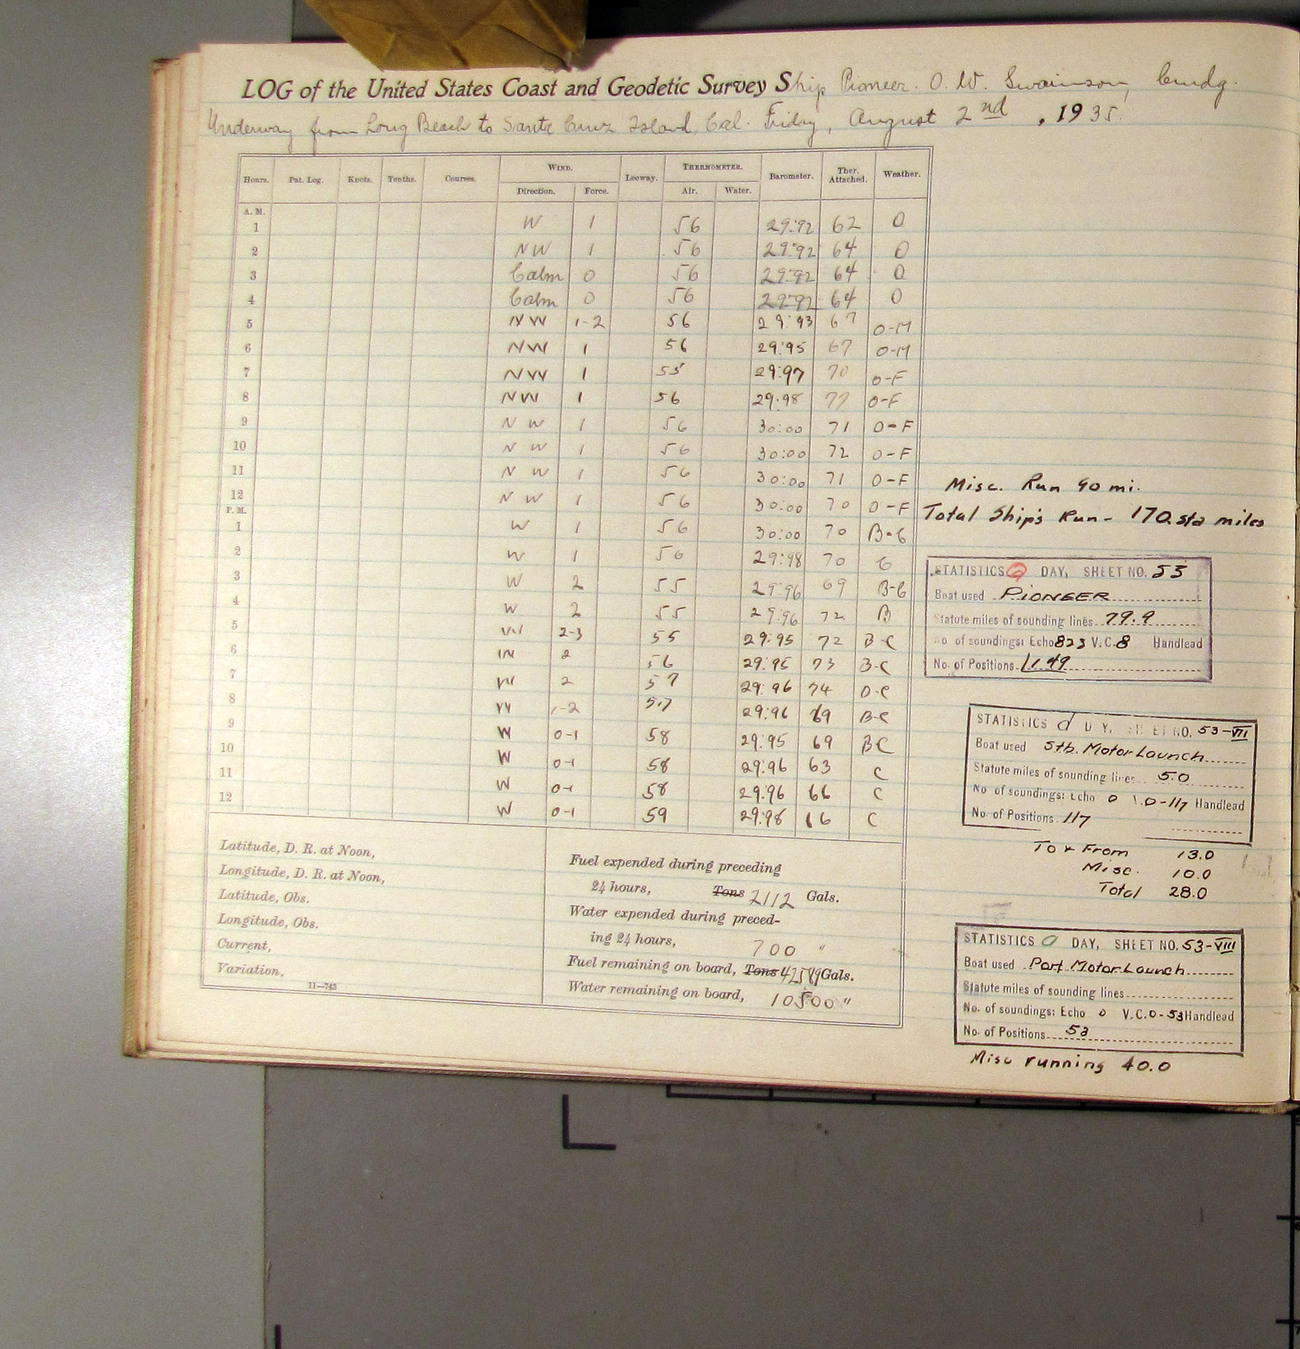 LOG of the United States Coast and Geodetic Survey Ship Pioneer. O. W. Swainson, Cmdg.
Underway from Long Beach to Santa Cruz Island, Cal. Friday, August 2nd, 1935.
Hours. Pat. Log. Knots. Tenths. Courses. WIND. Leeway. THERMOMETER. Barometer. Ther. Attached. Weather.
Direction. Force. Air. Water.
A. M.
1 W 1 56 29:92 62 O
2 NW 1 56 29:92 64 O
3 Calm 0 56 29:92 64 O
4 Calm 0 56 29:92 64 O
5 NW 1-2 56 29:93 67 O-M
6 NW 1 56 29:95 67 O-M
7 NW 1 55 29:97 70 O-F
8 NW 1 56 29:98 O-F
9 NW 1 56 30:00 71 O-F
10 NW 1 56 30:00 72 O-F
11 NW 1 56 30:00 71 O-F
12 NW 1 56 30:00 70 O-F
P. M.
1 W 1 56 30:00 70 B-C
2 W 1 56 29:98 70 C
3 W 2 55 29:96 69 B-C
4 W 2 55 29:96 72 B
5 W 2-3 55 29:95 72 B-C
6 W 2 56 29:95 73 B-C
7 W 2 57 29:96 74 B-C
8 W 1-2 57 29:96 69 B-C
9 W 0-1 58 29:95 69 BC
10 W 0-1 58 29:96 63 C
11 W 0-1 58 29:96 66 C
12 W 0-1 59 29:98 66 C
Latitude, D. R. at Noon,
Longitude, D. R. at Noon,
Latitude, Obs.
Longitude, Obs.
Current,
Variation,
11—743
Fuel expended during preceding
24 hours, Tons 2112 Gals.
Water expended during preced-
ing 24 hours, 700 "
Fuel remaining on board, Tons Gals.
Water remaining on board, 10500 "
Misc. Run 90 mi.
Total Ship's Run - 170 sta miles
STATISTICS DAY, SHEET NO. 53
Boat used PIONEER
Statute miles of sounding lines 79.9
No of soundings: Echo 823 V.C. 8 Handlead
No. of Positions
STATISTICS d DAY, SHEET NO. 53-VII
Boat used Stb. Motor Launch
Statute miles of sounding lines 5.0
No of soundings: Echo 0 V.C. 0-117 Handlead
No. of Positions 117
To & From 13.0
Misc. 10.0
Total 28.0
STATISTICS DAY, SHEET NO. 53-VIII
Boat used Port Motor Launch
Statute miles of sounding lines
No. of soundings: Echo 0 V.C. 0-53 Handlead
No. of Positions 53
Misc running 40.0